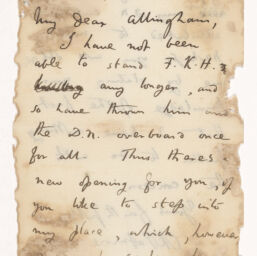 My dear Allingham,
I have not been
able to stand F. K. H.
any longer, and
so have thrown him and
the D.N. overboard once
for all. Thus theres
new opening for you, if
you like to step into
my place, which, however